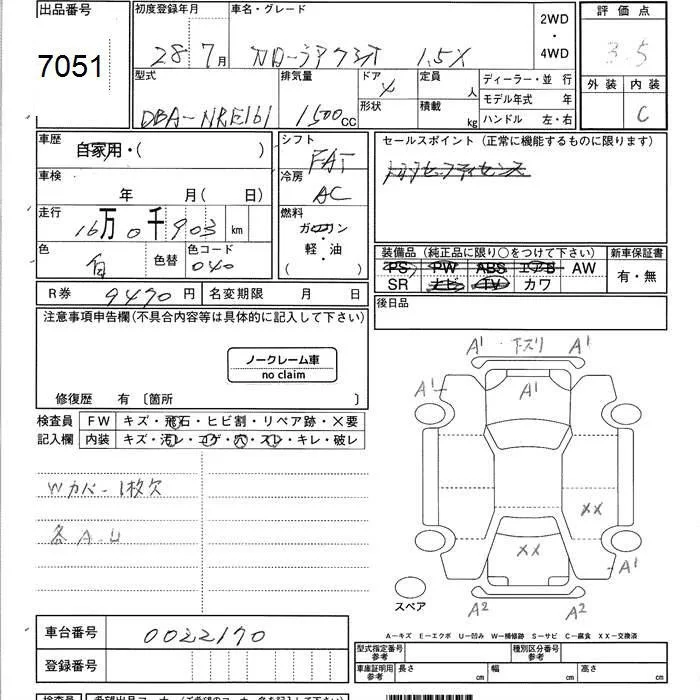 出品番号
7051
初度登録年月
28年 7月
車名・グレード
カローラアクシオ 1.5X
2WD
・
4WD
評価点
3.5
外装 内装
C
型式
DBA-NRE161
排気量
1500cc
ドア
4
形状
定員
人
積載
kg
ディーラー・並行
モデル年式 年
ハンドル 左・右
車歴
自家用・( )
車検
年 月( 日)
走行
16万0千903km
色
白
色替
色コード
040
シフト
FAT
冷房
AC
燃料
ガソリン
・
軽・油
( )
セールスポイント(正常に機能するものに限ります)
トヨタセーフティセンス
装備品(純正品に限り○をつけて下さい)
PS PW ABS エアB AW
SR ナビ TV カワ
新車保証書
有・無
R券 9470円
名変期限 月 日
後日品
注意事項申告欄(不具合内容等は具体的に記入して下さい)
ノークレーム車
no claim
修復歴 有〔箇所 〕
検査員
記入欄
FW キズ・飛石・ヒビ割・リペア跡・×要
内装 キズ・汚レ・コゲ・穴・スレ・キレ・破レ
Wカバー1枚欠
各A.U
A1 下ズリ A1
A1 A1
XX
XX
A1
A2 A2
スペア
A-キズ E-エクボ U-凹み W-補修跡 S-サビ C-腐食 XX-交換済
車台番号 0022170
登録番号
型式指定番号
参考
種別区分番号
参考
車庫証明用
参考
長さ cm 幅 cm 高さ cm
検査員